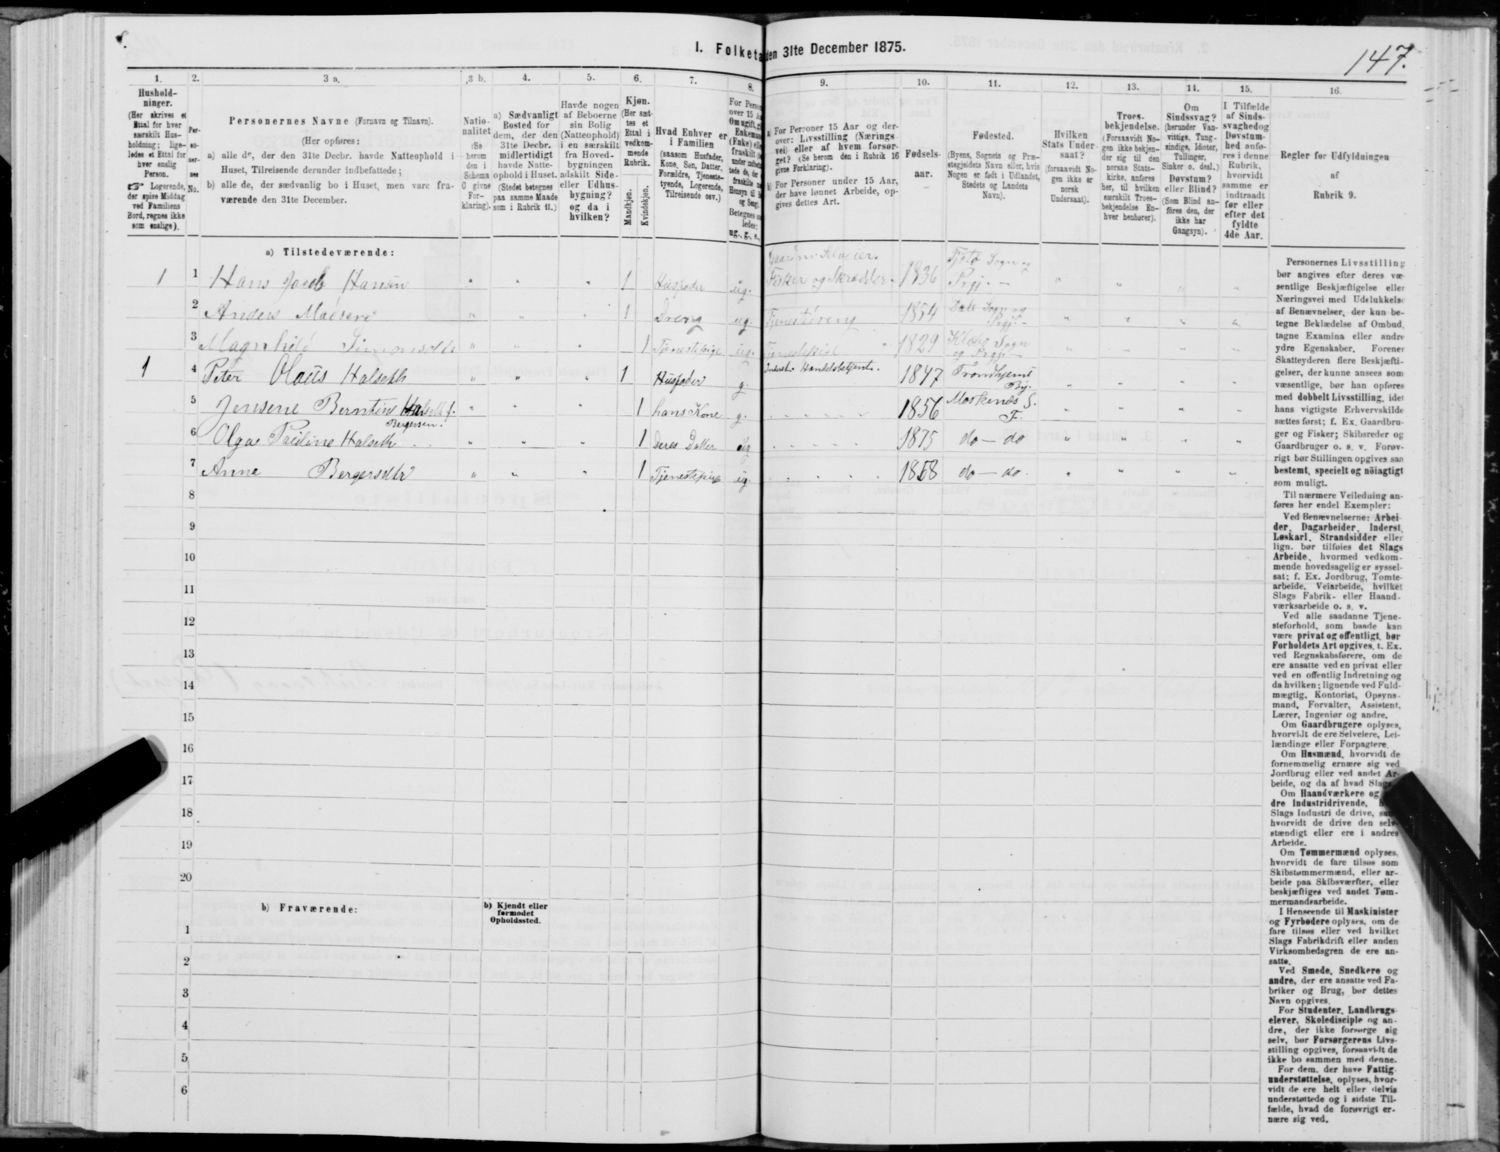 I. Folketa
den 31te December 1875.
147.
1.
2.
3 a.
3 b.
4.
5.
6.
7.
8.
9.
10.
11.
12.
13.
14.
15.
16.
Hushold-
ninger.
(Her skrives et
Ettal for hver
særskilt Hus-
holdning; lige-
ledes et Ettal for
hver enslig
Person.
☞ Logerende,
der spise Middag
ved Familiens
Bord, regnes ikke
som enslige).
Per-
so-
ner-
nes
No.
Personernes Navne (Fornavn og Tilnavn).
(Her opføres:
a) alle de, der den 31te Decbr. havde Natteophold i
Huset, Tilreisende derunder indbefattede;
b) alle de, der sædvanlig bo i Huset, men vare fra-
værende den 31te December.
Natio-
nalitet
(Se
herom
den i
Schema
O givne
For-
klaring).
a) Sædvanligt
Bosted for
dem, der den
31te Decbr.
midlertidigt
havde Natte-
ophold i Huset.
(Stedet betegnes
paa samme Maade
som i Rubrik 11.)
Havde nogen
af Beboerne
sin Bolig
(Natteophold)
i en særskilt
fra Hoved-
bygningen
adskilt Side-
eller Udhus-
bygning?
og da i
hvilken?
Kjøn.
(Her sæt-
tes et
Ettal i
vedkom-
mende
Rubrik.
Mandkjøn.
Kvindekjøn.
Hvad Enhver er
i Familien
(saasom Husfader,
Kone, Søn, Datter,
Forældre, Tjeneste-
tyende, Logerende,
Tilreisende osv.)
For Person
over 15 Aa
Om ugift, g
Enkema
(Enke) elle
fraskilt
Betegnes s
ledes:
ug., g., e.,
a) For Personer 15 Aar og der-
over: Livsstilling (Nærings-
vei) eller af hvem forsør-
get? (Se herom den i Rubrik 16
givne Forklaring).
b) For Personer under 15 Aar,
der have lønnet Arbeide, op-
gives dettes Art.
Fødsels-
aar.
Fødested.
(Byens, Sognets og Præ-
stegjeldets Navn eller, hvis
Nogen er født i Udlandet,
Stedets og Landets
Navn).
Hvilken
Stats Under-
saat?
(forsaavidt No-
gen ikke er
norsk
Undersaat).
Troes-
bekjendelse.
(Forsaavidt No-
gen ikke bekjen-
der sig til den
norske Stats-
kirke, anføres
her, til hvilken
særskilt Troes-
bekjendelse En-
hver henhører).
Om
Sindssvag?
(herunder Van-
vittige, Idioter,
Tullinger,
Sinker o. desl.)
Døvstum?
eller Blind?
(Som Blind an-
føres den, der
ikke har
Gangsyn).
I Tilfælde
af Sinds-
svaghed og
Døvstum-
hed anfø-
res i denne
Rubrik,
hvorvidt
samme er
indtraadt
før eller
efter det
fyldte
4de Aar.
Regler for Udfyldningen
af
Rubrik 9.
a) Tilstedeværende:
1 1 Hans Jacob Hansen 1 Husfader ug. Fisker og Skrædder 1836 Prgj.
2 Anders 1 Dreng ug. Tjenestdreng 1854 Dale Sogn og Prgj.
3 Magnhild Simonsdtr 1 Tjenestepige ug. 1829 Sogn og Prgj.
1 4 Peter Olaus Halseth 1 Husfader g. Handelsbetjent 1847 Trondhjems By.
5 Jensene Berntine Halseth f. Bergersen. 1 hans Kone g. 1856 Moskenes S. F.
6 Olga Pauline Halseth 1 Deres Datter ug 1875 do — do
7 Anne Bergersdtr 1 Tjenestepige ug 1858 do — do.
8
9
10
11
12
13
14
15
16
17
18
19
20
b) Fraværende:
b) Kjendt eller
formodet
Opholdssted.
1
2
3
4
5
6
Personernes Livsstilling
bør angives efter deres væ-
sentlige Beskjæftigelse eller
Næringsvei med Udelukkelse
af Benævnelser, der kun be-
tegne Beklædelse af Ombud,
tagne Examina eller andre
ydre Egenskaber. Forener
Skatteyderen flere Beskjæfti-
gelser, der kunne ansees som
væsentlige, bør han opføres
med dobbelt Livsstilling, idet
hans vigtigste Erhvervskilde
sættes først; f. Ex. Gaardbru-
ger og Fisker; Skibsreder og
Gaardbruger o. s. v. Forøv-
rigt bør Stillingen opgives saa
bestemt, specielt og nøiagtigt
som muligt.
Til nærmere Veiledning an-
føres her endel Exempler:
Ved Benævnelserne: Arbei-
der, Dagarbeider, Inderst,
Løskarl, Strandsidder eller
lign. bør tilføies det Slags
Arbeide, hvormed vedkom-
mende hovedsagelig er syssel-
sat; f. Ex. Jordbrug, Tomte-
arbeide, Veiarbeide, hvilket
Slags Fabrik- eller Haand-
værksarbeide o. s. v.
Ved alle saadanne Tjene-
steforhold, som baade kan
være privat og offentligt, bør
Forholdets Art opgives, t. Ex.
ved Regnskabsførere, om de
ere ansatte ved en privat eller
ved en offentlig Indretning og
da hvilken; lignende ved Fuld-
mægtig, Kontorist, Opsyns-
mand, Forvalter, Assistent,
Lærer, Ingeniør og andre.
Om Gaardbrugere oplyses,
hvorvidt de ere Selveiere, Lei-
lændinge eller Forpagtere.
Om Husmænd, hvorvidt de
fornemmelig ernære sig ved
Jordbrug eller ved andet Ar-
beide, og da af hvad Slags
Om Haandværkere og
dre Industridrivende,
Slags Industri de drive,
hvorvidt de drive den sel-
stændigt eller ere i andres
Arbeide.
Om Tømmermænd oplyses,
hvorvidt de fare tilsøs som
Skibstømmermænd, eller ar-
beide paa Skibsværfter, eller
beskjæftiges ved andet Tøm-
mermandsarbeide.
I Henseende til Maskinister
og Fyrbødere oplyses, om de
fare tilsøs eller ved hvilket
Slags Fabrikdrift eller anden
Virksomhedsgren de ere an-
satte.
Ved Smede, Snedkere og
andre, der ere ansatte ved Fa-
briker og Brug, bør dettes
Navn opgives.
For Studenter, Landbrugs-
elever, Skoledisciple og an-
dre, der ikke forsørge sig
selv, bør Forsørgerens Livs-
stilling opgives, forsaavidt de
ikke bo sammen med denne.
For dem, der have Fattig-
understøttelse, oplyses, hvor-
vidt de ere helt eller delvis
understøttede og i sidste Til-
fælde, hvad de forøvrigt er-
nære sig ved.